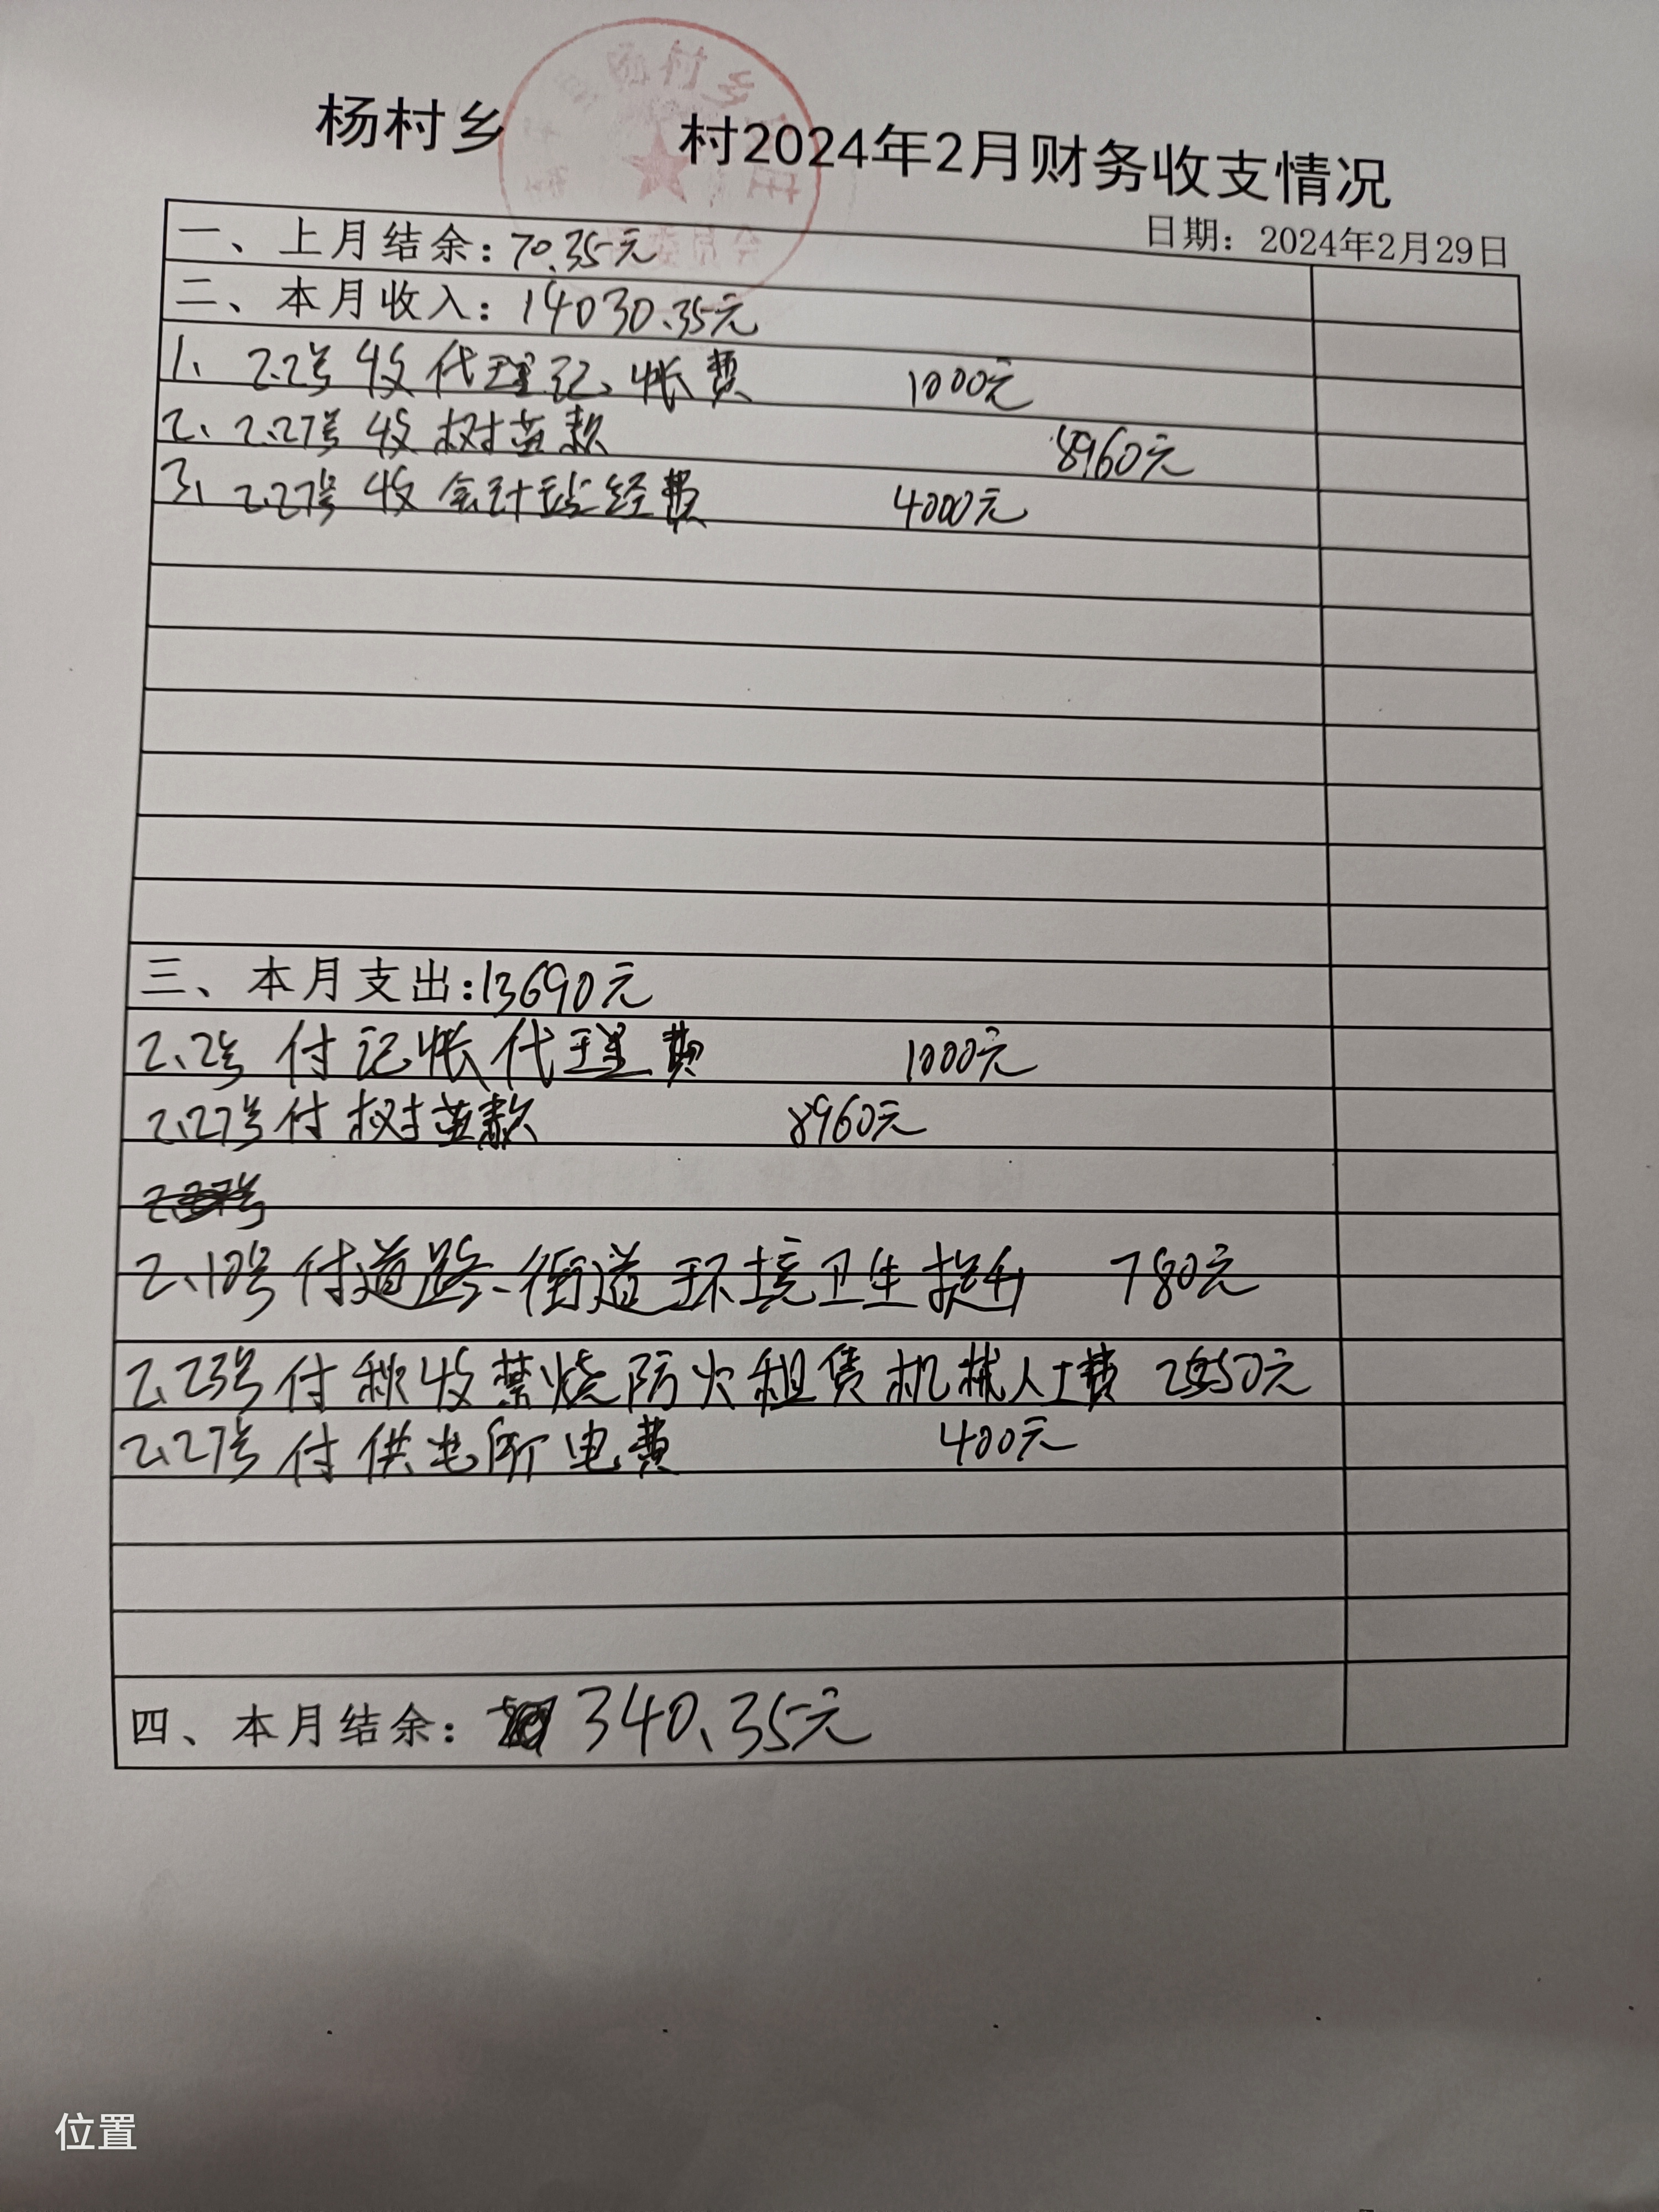 杨村乡 村2024年2月财务收支情况
日期：2024年2月29日
一、上月结余：70.35元
二、本月收入：14030.35元
1、2.2号收代理记帐费 1000元
2、2.27号收树苗款 8960元
3、2.27号收会计站经费 4000元
三、本月支出：13690元
2.2号付记帐代理费 1000元
2.27号付树苗款 8960元
2.10号付道路、街道环境卫生提升 780元
2.23号付秋收禁烧防火租赁机械人工费 2550元
2.27号付供电所电费 400元
四、本月结余： 340.35元
位置